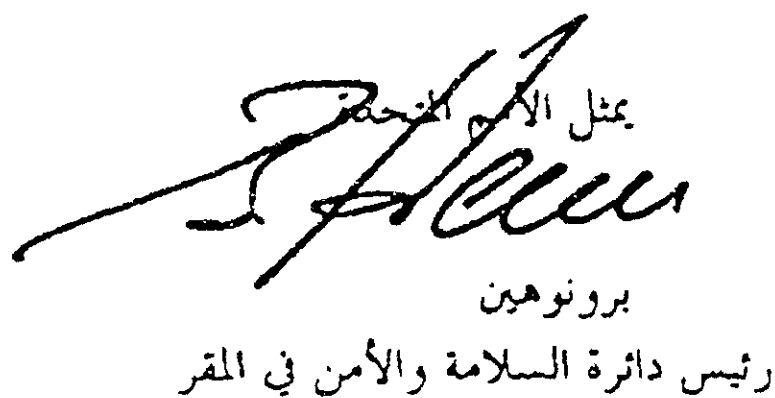 يمثل الأمم المتحدة
برونوهين
رئيس دائرة السلامة والأمن في المقر